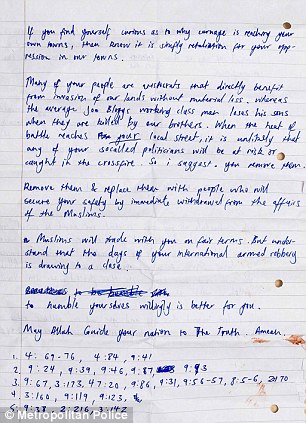 If you find yourself curious as to why carnage is reaching your
own towns, then know it is simply retaliation for your opp-
ression in our towns.
Many of your people are aristocrats that directly benefit
from invasion of our lands without material loss. whereas
the average Joe Bloggs working class man loses his sons
when they are killed by our brothers. When the heat of
battle reaches your local street, it is unlikely that
any of your socalled politicians will be at risk or
caught in the crossfire. So i suggest you remove them.
Remove them & replace them with people who will
secure your safety by immediate withdrawal from the affairs
of the Muslims.
Muslims will trade with you on fair terms. But under-
stand that the days of your international armed robbery
is drawing to a close.
to humble yourselves willingly is better for you.
May Allah Guide your nation to The Truth. Ameen.
1. 4: 69-76, 4:84, 9:41
2. 9:24, 9:39, 9:46, 9:87 9:93
3. 9:67, 3:173, 47:20, 9:86, 9:31, 9:56-57, 8:5-6,
4. 3:160, 9:119, 9:123,
5. 9:38, 2:216,
© Metropolitan Police